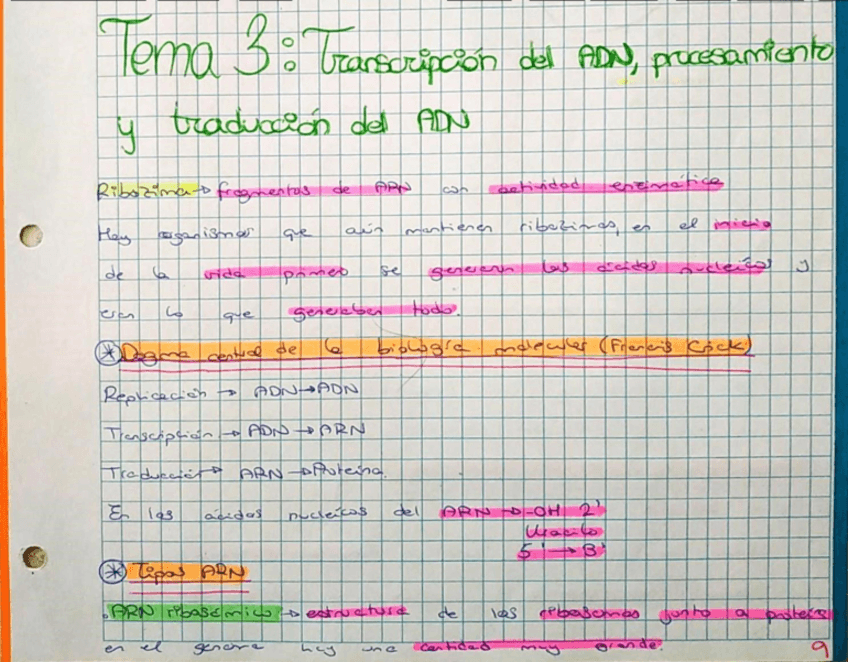 Tema 3: Transcripción del ADN, procesamiento
y traducción del ADN
Ribozima → fragmentos de ARN con actividad enzimática
Hay organismos que aún mantienen ribozimas, en el inicio
de la vida primero se generaron los ácidos nucleicos y
eran lo que generaban todo.
* Dogma central de la biología molecular (Francis Crick)
Replicación → ADN → ADN
Transcripción → ADN → ARN
Traducción → ARN → Proteína.
En los ácidos nucleicos del ARN → -OH 2'
Uracilo
5' → 3'
* Tipos ARN
. ARN ribosómico → estructura de los ribosomas junto a proteín
en el genoma hay una cantidad muy grande.
9